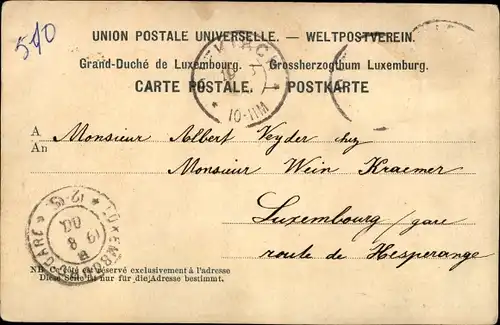 510
UNION POSTALE UNIVERSELLE. — WELTPOSTVEREIN.
Grand-Duché de Luxembourg. - Grossherzogthum Luxemburg.
CARTE POSTALE. POSTKARTE
10-11M
A Monsieur Albert Veyder chez
An
Monsieur Wein Kraemer
Luxembourg / gare
route de Hesperange
LUXEMBURG GARE
NB. Ce côté est réservé exclusivement à l'adresse
Diese Seite ist nur für die Adresse bestimmt.